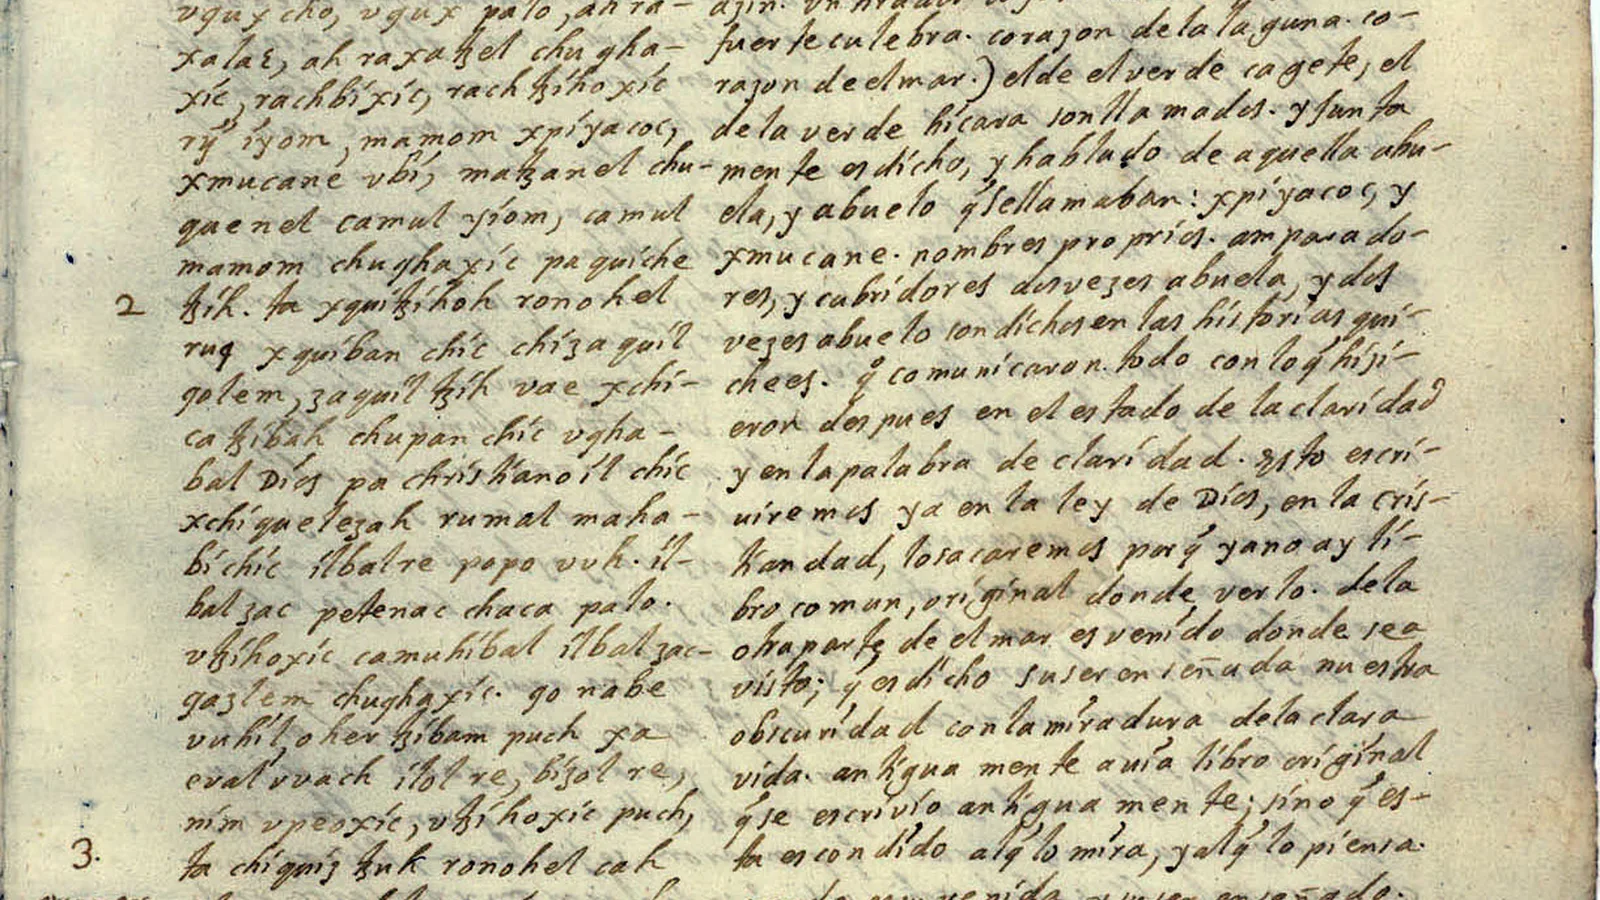 vqux cho, vqux palo, ah ra-
xalaɛ, ah raxatzel chugha-
xic, rachbixic, rachtzihoxic
rij iyom, mamom xpiyacoc,
xmucane vbi, matzanel chu-
quenel camul yiom, camul
mamom chughaxic paquiche
2 tzih. ta xquitzihoh ronohel
ruq xquiban chic chizaquil
qolem, zaquil tzih vae xchi-
catzibah chupan chic vgha-
bal Dios pa christianoil chic
xchiquelezah rumal maha-
bichic ilbalre popo vuh. il-
bal zac petenac chaca palo.
vtzihoxic camuhibal ilbal zac-
qazlem chughaxic. qo nabe
vuhil, oher tzibam puch xa
eval vvach ilol re, bizol re,
nim vpeoxic, vtzihoxic puch,
3. ta chiquiz tzuk ronohel cah
fuerte culebra. corazon dela laguna. co-
razon de el mar.) el de el verde cagete, el
dela verde hicara son llamados. y junta
mente es dicho, y hablado de aquella abu-
ela, y abuelo q̃ se llamaban: xpiyacoc, y
xmucane. nombres proprios. amparado-
res, y cubridores dos vezes abuela, y dos
vezes abuelo son dichos en las historias qui-
chees. q̃ comunicaron. todo con lo q̃ hizi-
eron despues en el estado de la claridad
y en la palabra de claridad. Esto escri-
viremos ya en la ley de Dios, en la cris-
tiandad, lo sacaremos porq̃ ya no ay li-
bro comun, original donde verlo. dela
otra parte de el mar es venido donde se a
visto; q̃ es dicho su ser enseñada nuestra
obscuridad con la miradura dela clara
vida. antigua mente auia libro original
q̃ se escrivio antigua mente; sino q̃ es-
ta escondido alq̃ lo mira, y alq̃ lo piensa.